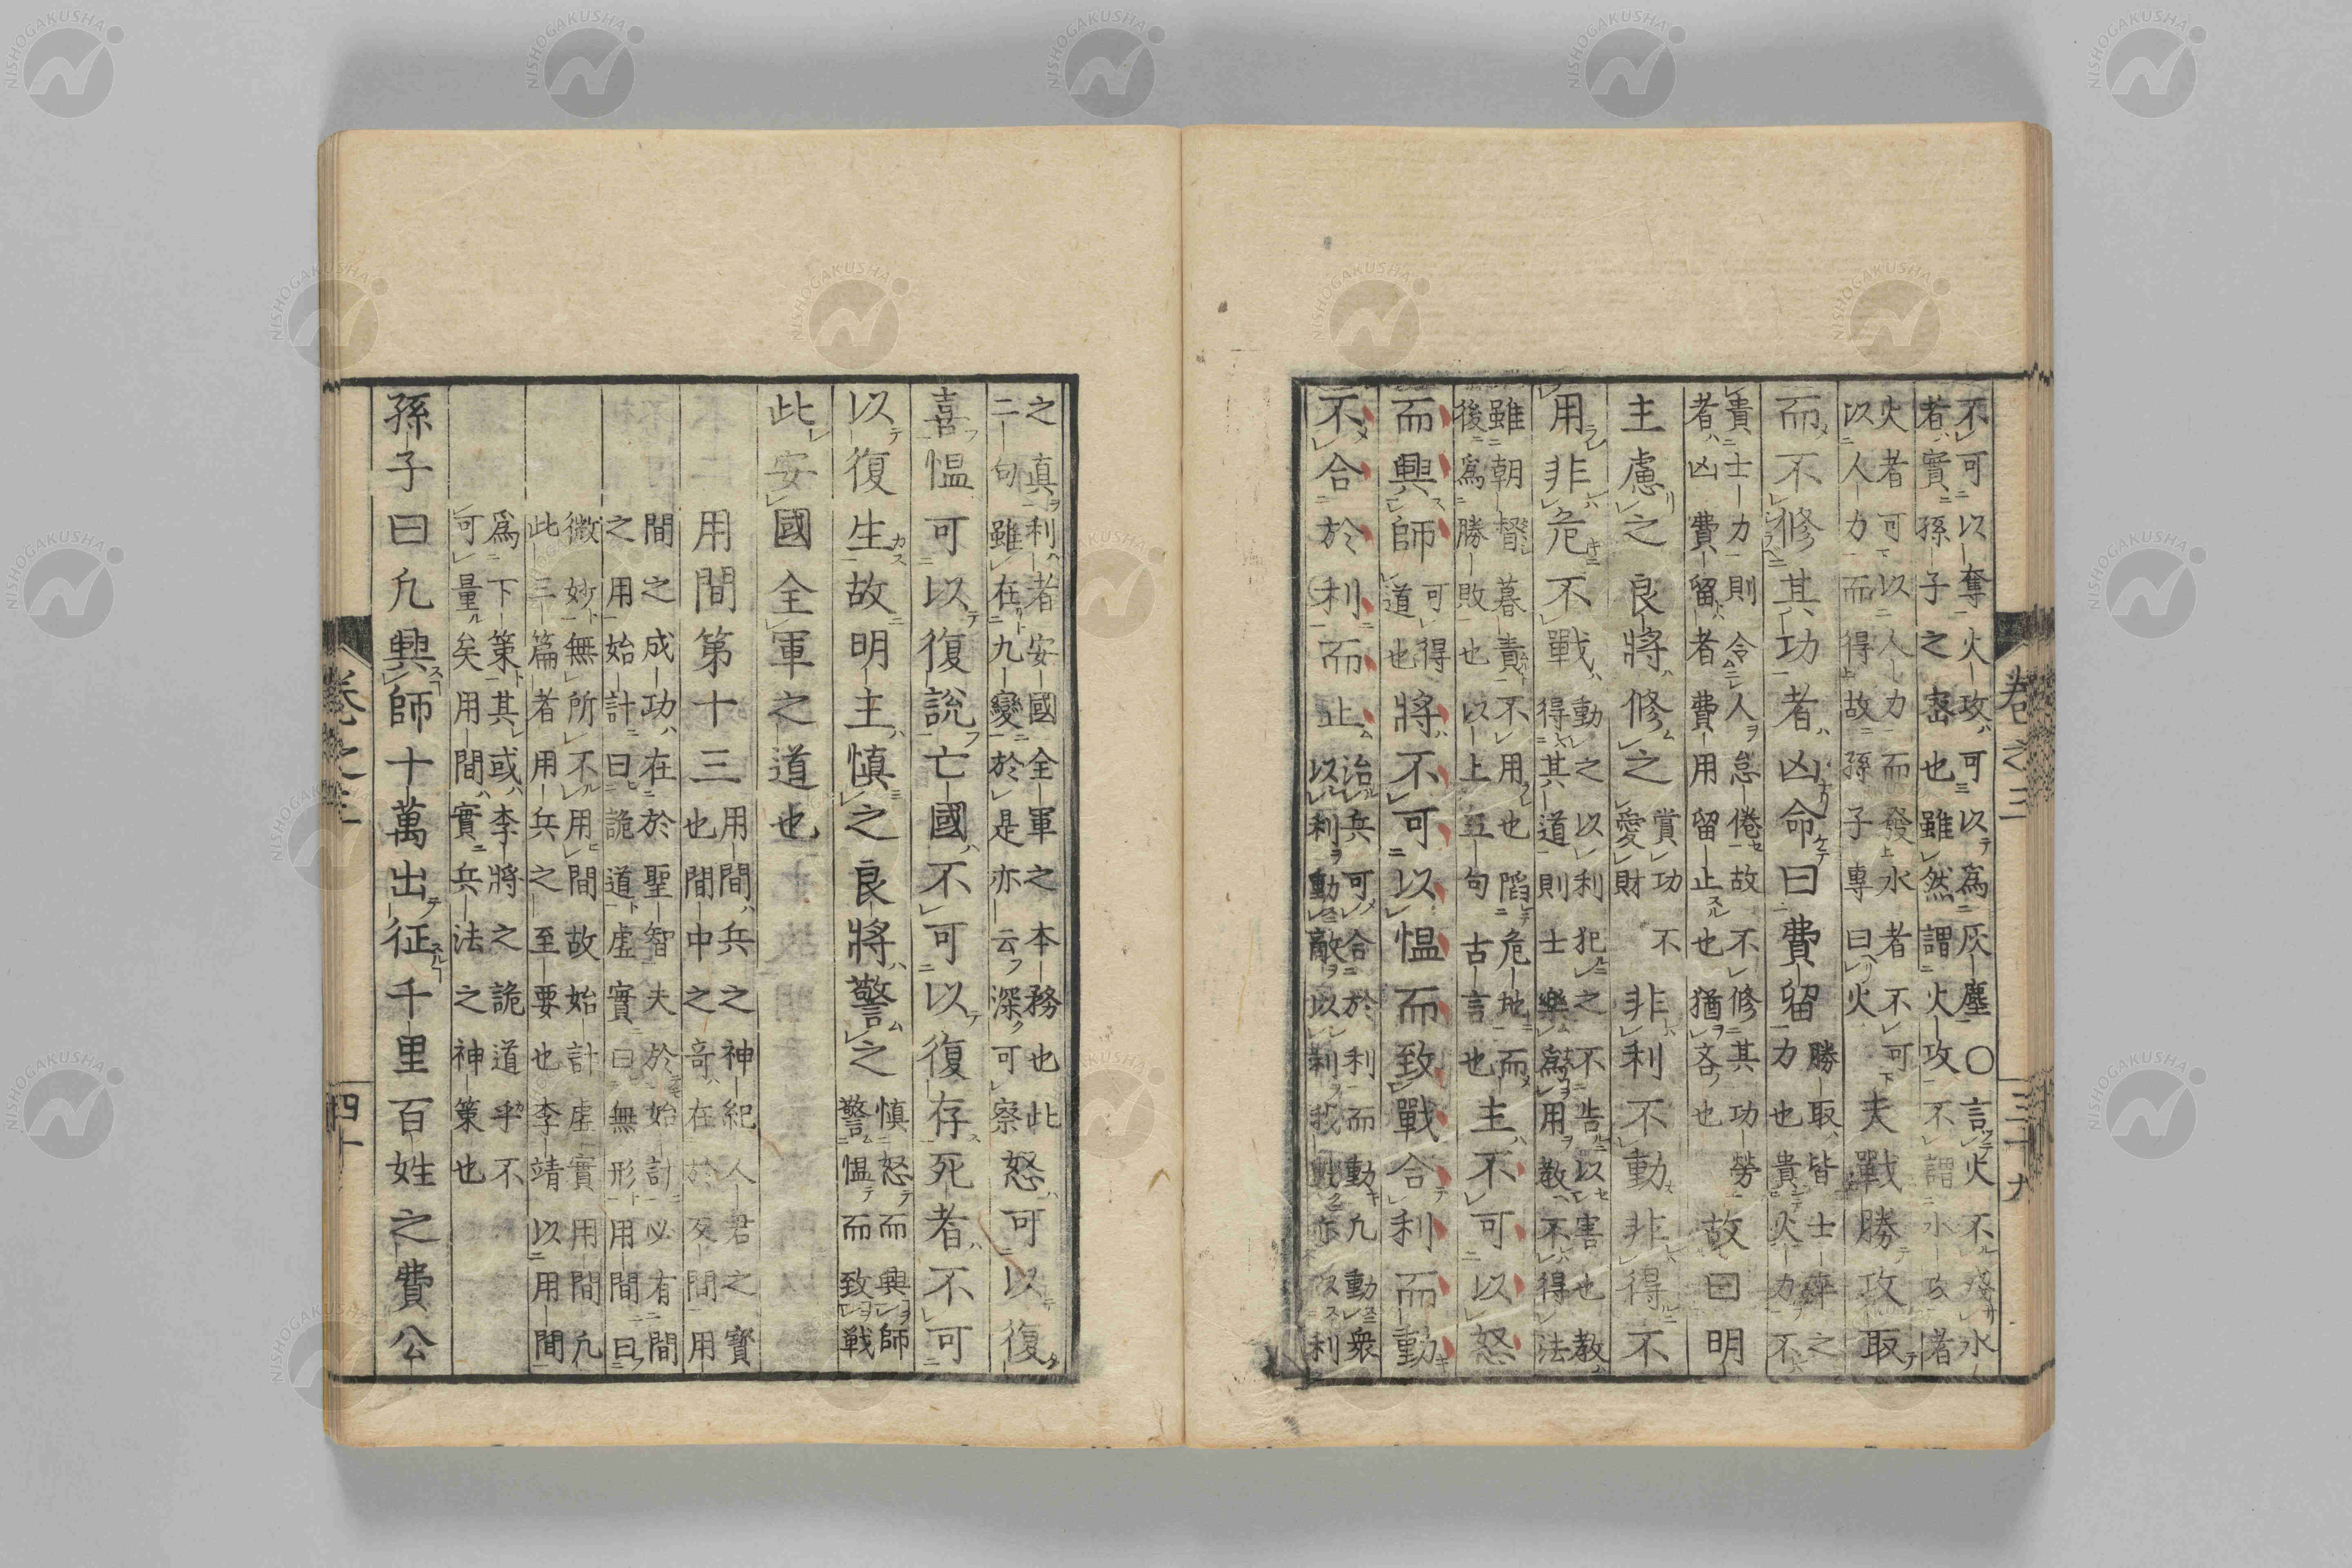 卷之三 三十九
不可以奪火攻可以為灰塵〇言火不殘水
者實孫子之密也雖然謂火攻不謂水攻者
火者可以人力而發水者不可
以人力而得故孫子專曰火
夫戰勝攻取
而不修其功者凶命曰費留
勝取皆士卒之
力也貴火力不
貴士力則令人怠倦故不修其功勞
者凶費留者費用留止也猶吝也
故曰明
主慮之良將修之
賞功不
愛財
非利不動非得不
用非危不戰
動之以利犯之不告以害也教
得其道則士樂為用教不得法
雖朝督暮責不用也陷危地而
後為勝敗也以上五句古言也
主不可以怒
而興師
可得
道也
將不可以慍而致戰合利而動
不合於利而止
治兵可合於利而動凡動衆
以利動敵以利我動亦仮利
之真利者安國全軍之本務也此
二句雖在九變於是亦云深可察
怒可以復
喜慍可以復説亡國不可以復存死者不可
以復生故明主慎之良將警之
慎怒而興師
警慍而致戦
此安國全軍之道也
用間第十三
用間兵之神紀人君之寶
也間中之奇在於反間用
間之成功在於聖智夫於始計必有間
之用始計曰詭道虚實曰無形用間曰
微妙無所不用間故始計虚實用間凡
此三篇者用兵之至要也李靖以用間
為下策其或李將之詭道乎不
可量矣用間實兵法之神策也
孫子曰凡興師十萬出征千里百姓之費公
卷之三 四十
NISHOGAKUSHA